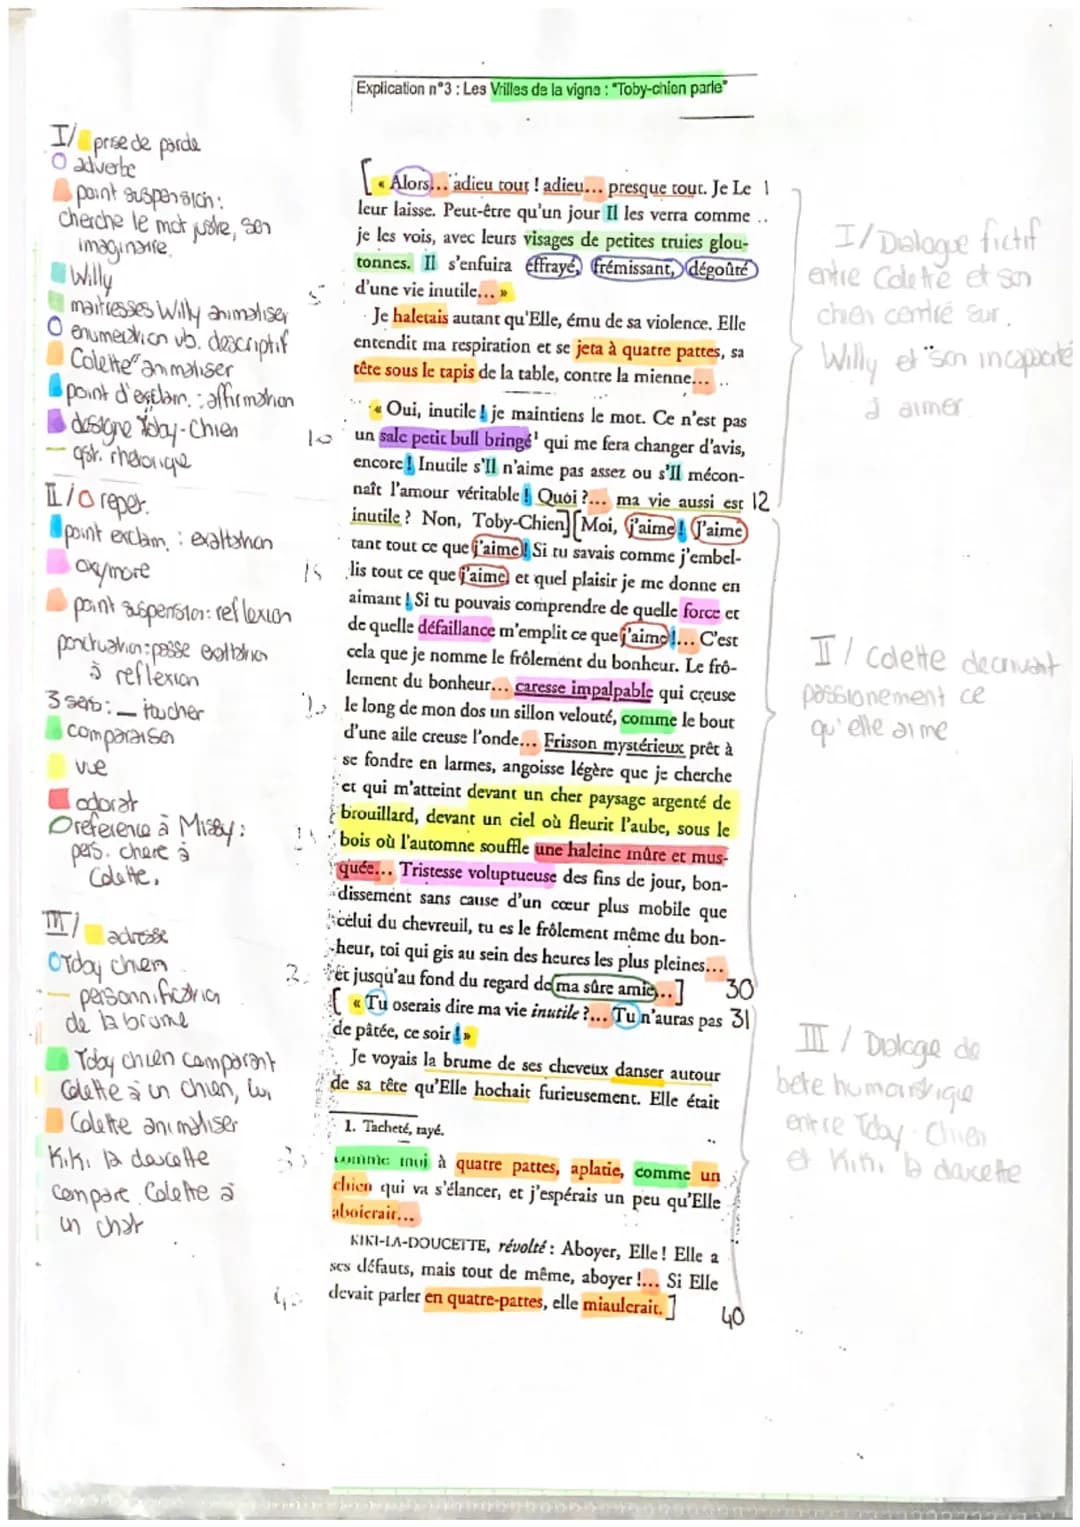 Explication n°3 : Les Vrilles de la vigne : "Toby-chien parle"
I/ prise de parole
adverbe
point suspension :
cherche le mot juste, son
imaginaire.
Willy
maitresses Willy animaliser
enumeration vb. descriptif
Colette animaliser
point d'exclam. : affirmation
designe Toby-Chien
qst. rhetorique
II/ reper.
point exclam. : exaltation
oxymore
point suspension : reflexion
ponctuation : passe exaltation
à reflexion
3 sens : _ toucher
comparaison
vue
odorat
reference à Missy :
pers. chere à
Colette.
III/ adresse
Toby chien
personnification
de la brume
Toby chien comparant
Colette à un chien, lui
Colette animaliser
Kiki la doucette
compare Colette à
un chat
« Alors... adieu tout ! adieu... presque tout. Je Le 1
leur laisse. Peut-être qu'un jour Il les verra comme
je les vois, avec leurs visages de petites truies glou-
tonnes. Il s'enfuira effrayé, frémissant, dégoûté
5 d'une vie inutile... »
Je haletais autant qu'Elle, ému de sa violence. Elle
entendit ma respiration et se jeta à quatre pattes, sa
tête sous le tapis de la table, contre la mienne...
« Oui, inutile ! je maintiens le mot. Ce n'est pas
10 un sale petit bull bringé¹ qui me fera changer d'avis,
encore ! Inutile s'Il n'aime pas assez ou s'Il mécon-
naît l'amour véritable ! Quoi ?... ma vie aussi est 12
inutile ? Non, Toby-Chien] [Moi, j'aime ! J'aime
tant tout ce que j'aime ! Si tu savais comme j'embel-
15 lis tout ce que j'aime, et quel plaisir je me donne en
aimant ! Si tu pouvais comprendre de quelle force et
de quelle défaillance m'emplit ce que j'aime !... C'est
cela que je nomme le frôlement du bonheur. Le frô-
lement du bonheur... caresse impalpable qui creuse
le long de mon dos un sillon velouté, comme le bout
d'une aile creuse l'onde... Frisson mystérieux prêt à
se fondre en larmes, angoisse légère que je cherche
et qui m'atteint devant un cher paysage argenté de
brouillard, devant un ciel où fleurit l'aube, sous le
bois où l'automne souffle une haleine mûre et mus-
quée... Tristesse voluptueuse des fins de jour, bon-
dissement sans cause d'un cœur plus mobile que
celui du chevreuil, tu es le frôlement même du bon-
heur, toi qui gis au sein des heures les plus pleines...
et jusqu'au fond du regard de ma sûre amie...] 30
[ « Tu oserais dire ma vie inutile ?... Tu n'auras pas 31
de pâtée, ce soir ! »
Je voyais la brume de ses cheveux danser autour
de sa tête qu'Elle hochait furieusement. Elle était
1. Tacheté, rayé.
comme moi à quatre pattes, aplatie, comme un
chien qui va s'élancer, et j'espérais un peu qu'Elle
aboierait...
KIKI-LA-DOUCETTE, révolté : Aboyer, Elle ! Elle a
ses défauts, mais tout de même, aboyer !... Si Elle
devait parler en quatre-pattes, elle miaulerait. ]
40
I/ Dialogue fictif
entre Colette et son
chien centré sur
Willy et son incapacité
à aimer
II/ Colette decrivant
passionement ce
qu'elle aime
III/ Dialogue de
bete humoristique
entre Toby-Chien
et Kiki la doucette